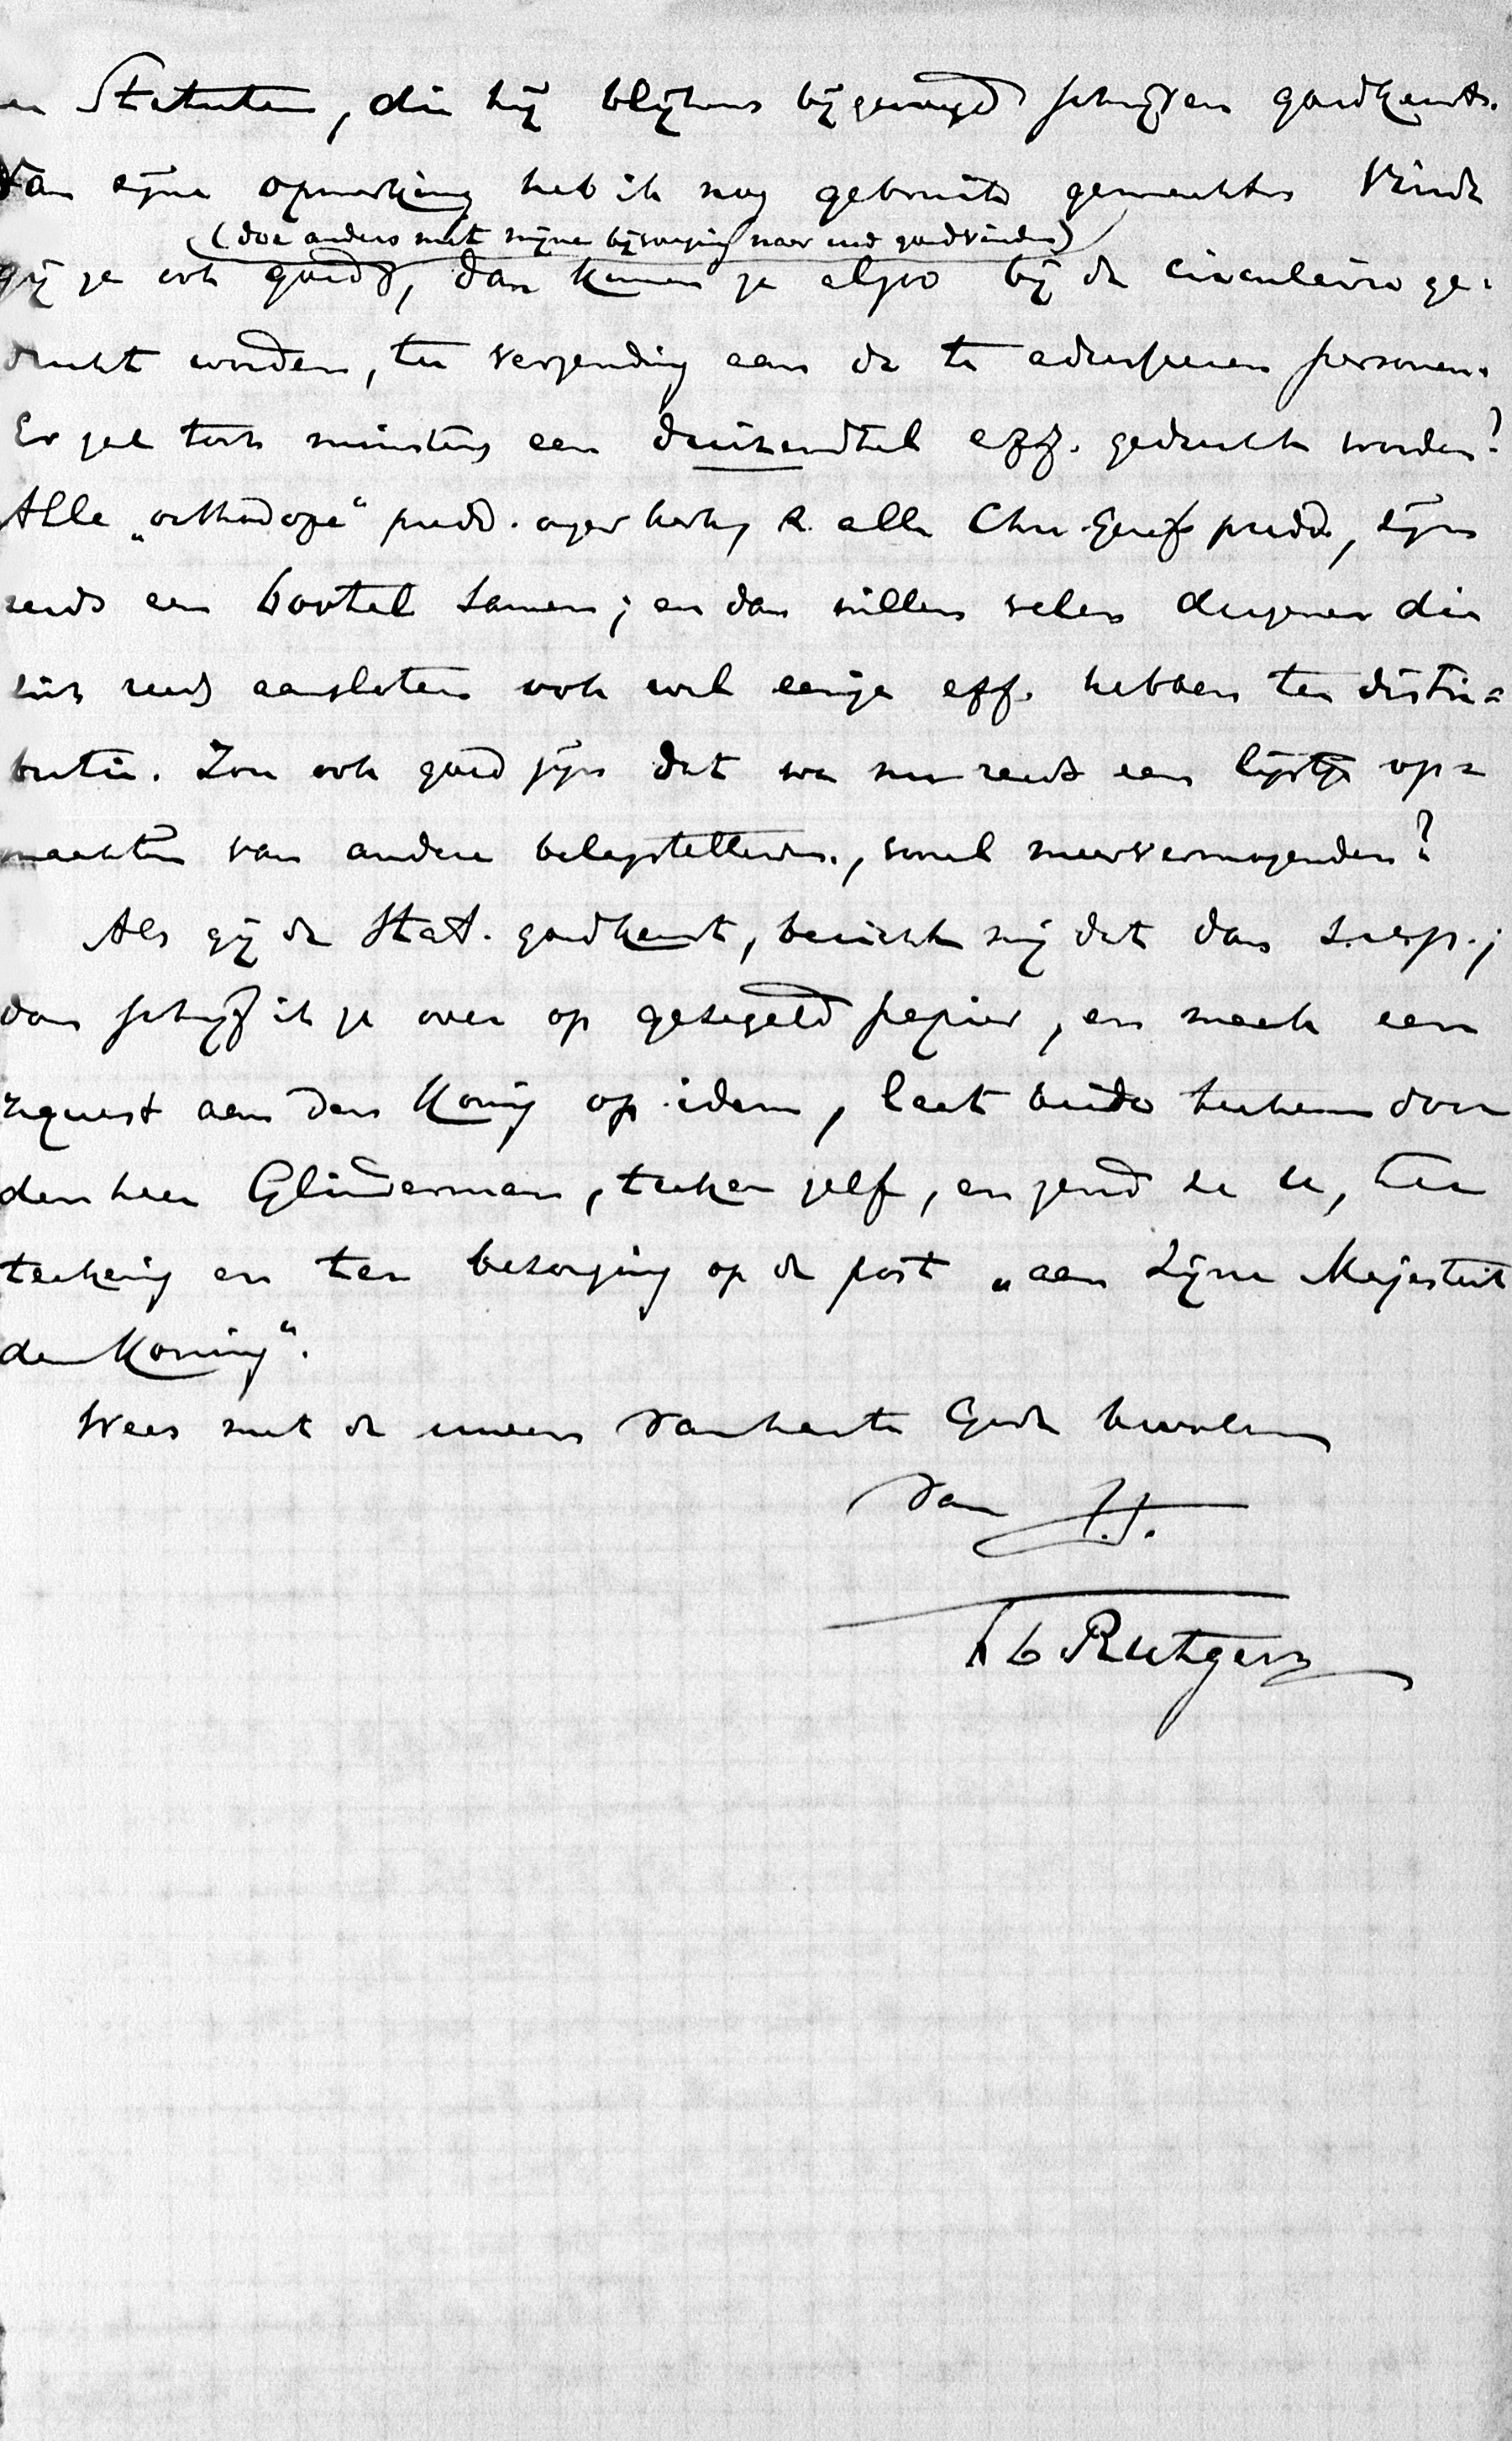 en Statuten, die hij blijkens bijgevoegd schrijven goedkeurt.
Van zijne opmerking heb ik nog gebruik gemaakt. Vindt
(doe anders met mijne bijvoeging naar uw goedvinden)
gij ze ook goed, dan kunnen ze alzoo bij de circulaire ge-
drukt worden, ter verzending aan de te adresseeren personen.
Er zal toch minstens een duizendtal exx. gedrukt worden?
Alle „orthodoxe" predd. onzer kerk, & alle Chr. Geref. predd., zijn
reeds een bootel samen; en dan willen velen dergenen die
zich reeds aansloten ook wel eenige exx. hebben ter distri-
butie. Zou ook goed zijn dat we nu reeds een lijstje op-
maakten van andere belangstellenden, vooral meervermogenden?
Als gij de Stat. goedkeurt, bericht mij dat dan s.v.p.;
dan schrijf ik ze over op gezegeld papier, en maak een
request aan den Koning op idem, laat beide teekenen door
den heer Glinderman, teeken zelf, en zend ze u, ter
teekening en ter bezorging op de post „aan Zijne Majesteit
den Koning".
Wees met de uwen van harte Gode bevolen
van t.t.
Rutgers